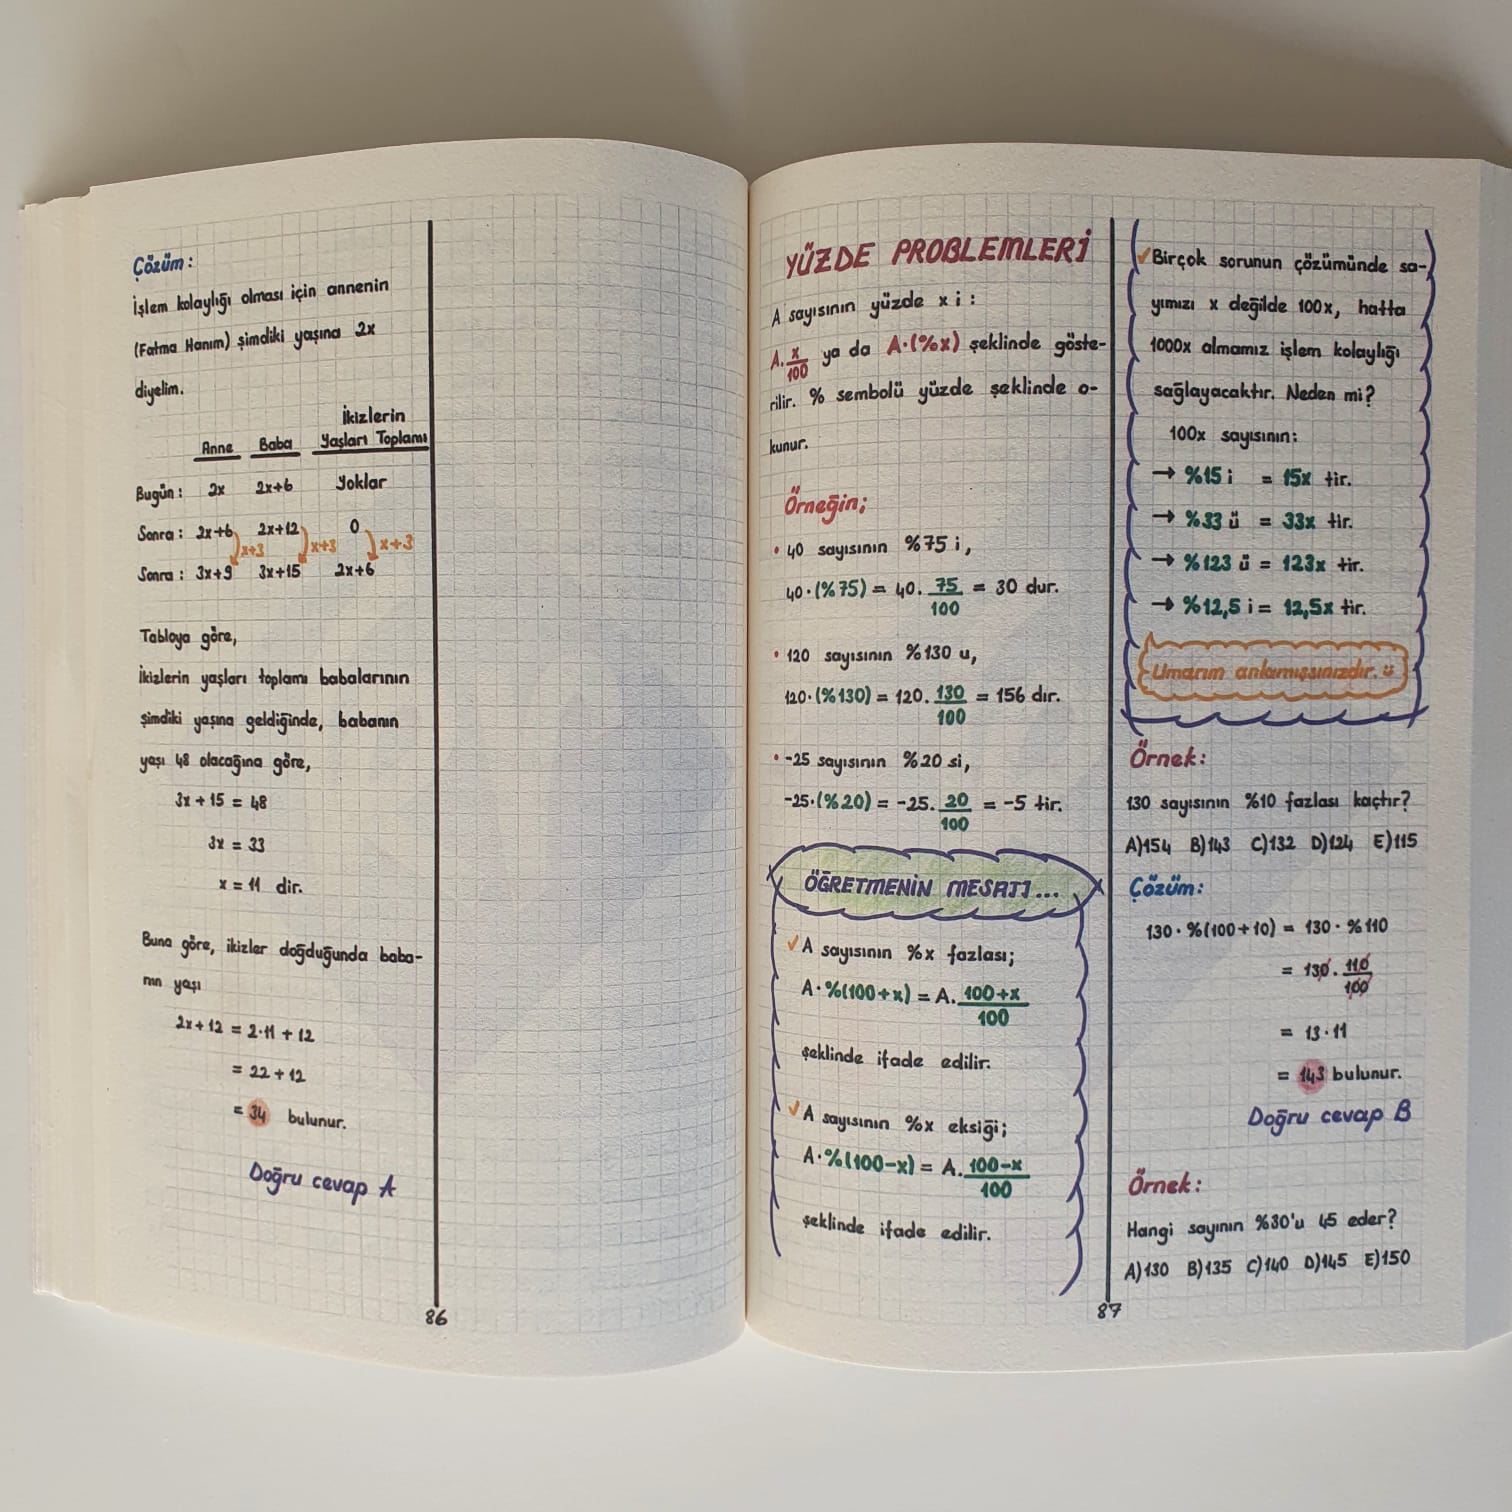 Çözüm:
İşlem kolaylığı olması için annenin
(Fatma Hanım) şimdiki yaşına 2x
diyelim.
Anne Baba İkizlerin Yaşları Toplamı
Bugün: 2x 2x+6 Yoklar
Sonra: 2x+6 2x+12 0
x+3 x+3 x+3
Sonra: 3x+9 3x+15 2x+6
Tabloya göre,
İkizlerin yaşları toplamı babalarının
şimdiki yaşına geldiğinde, babanın
yaşı 48 olacağına göre,
3x+15 = 48
3x = 33
x = 11 dir.
Buna göre, ikizler doğduğunda baba-
nın yaşı
2x+12 = 2·11 + 12
= 22+12
= 34 bulunur.
Doğru cevap A
86
YÜZDE PROBLEMLERİ
A sayısının yüzde x i:
A. x/100 ya da A·(%x) şeklinde göste-
rilir. % sembolü yüzde şeklinde o-
kunur.
Örneğin;
• 40 sayısının %75 i,
40·(%75) = 40. 75/100 = 30 dur.
• 120 sayısının %130 u,
120·(%130) = 120. 130/100 = 156 dır.
• -25 sayısının %20 si,
-25·(%20) = -25. 20/100 = -5 tir.
ÖĞRETMENİN MESAJI...
✓ A sayısının %x fazlası;
A·%(100+x) = A. 100+x/100
şeklinde ifade edilir.
✓ A sayısının %x eksiği;
A·%(100-x) = A. 100-x/100
şeklinde ifade edilir.
✓ Birçok sorunun çözümünde sa-
yımızı x değilde 100x, hatta
1000x almamız işlem kolaylığı
sağlayacaktır. Neden mi?
100x sayısının:
→ %15 i = 15x tir.
→ %33 ü = 33x tir.
→ %123 ü = 123x tir.
→ %12,5 i = 12,5x tir.
Umarım anlamışsınızdır.
Örnek:
130 sayısının %10 fazlası kaçtır?
A)154 B)143 C)132 D)124 E)115
Çözüm:
130·%(100+10) = 130·%110
= 130. 110/100
= 13·11
= 143 bulunur.
Doğru cevap B
Örnek:
Hangi sayının %30'u 45 eder?
A)130 B)135 C)140 D)145 E)150
87